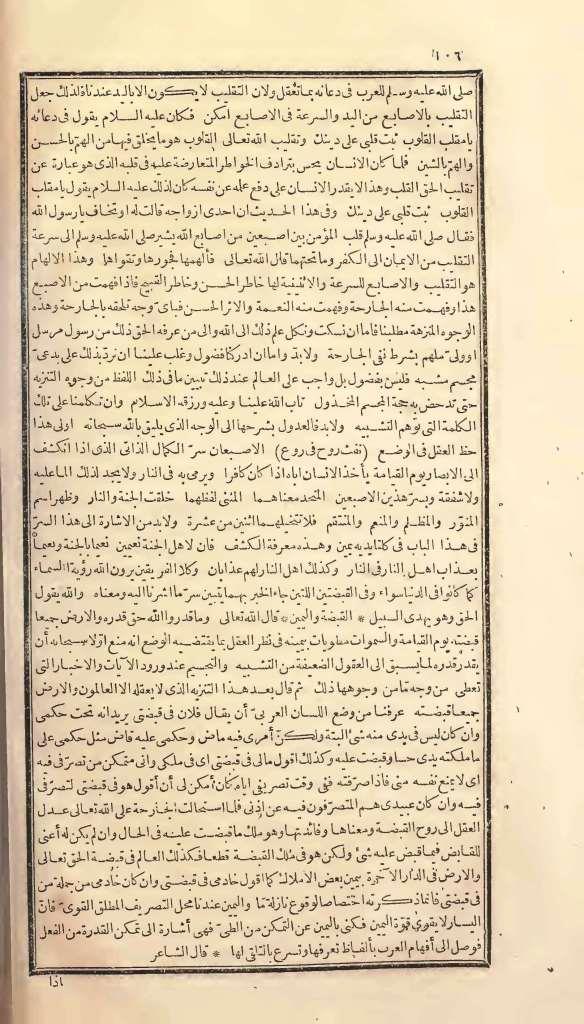 ١٠٦
صلى الله عليه وسلم للعرب فى دعائه بما تعقل ولان التقليب لا يكون الا باليد عندنا فلذلك جعل
التقليب بالاصابع من اليد والسرعة فى الاصابع أمكن فكان عليه السلام يقول فى دعائه
يا مقلب القلوب ثبت قلبى على دينك وتقليب الله تعالى القلوب هو ما يخلق فيها من الهم بالحسن
والهم بالشين فلما كان الانسان يحس بترادف الخواطر المتعارضة عليه فى قلبه الذى هو عبارة عن
تقليب الحق القلب وهذا لا يقدر الانسان على دفع علمه عن نفسه كان لذلك عليه السلام يقول يا مقلب
القلوب ثبت قلبى على دينك وفى هذا الحديث ان احدى ازواجه قالت له او تخاف يا رسول الله
فقال صلى الله عليه وسلم قلب المؤمن بين اصبعين من اصابع الله يشير صلى الله عليه وسلم الى سرعة
التقليب من الايمان الى الكفر وما تحتهما قال الله تعالى فألهمها فجورها وتقواها وهذا الالهام
هو التقليب والاصابع للسرعة والاثنينية لها خاطر الحسن وخاطر القبيح فاذا فهمت من الاصبع
هذا وفهمت منه الجارحة وفهمت منه النعمة والاثر الحسن فبأى وجه تلحقه بالجارحة وهذه
الوجوه المنزهة مطلبنا فاما ان نسكت ونكل علم ذلك الى الله والى من عرفه الحق ذلك من رسول مرسل
او ولى ملهم بشرط نفى الجارحة ولابد واما ان ادركنا فضول وغلب علينا ان نرد بذلك على بدعى
مجسم مشبه فليس بفضول بل واجب على العالم عند ذلك تبيين ما فى ذلك اللفظ من وجوه التنزيه
حتى تدحض به حجة المجسم المخذول تاب الله علينا وعليه ورزقه الاسلام وان تكلمنا على تلك
الكلمة التى توهم التشبيه ولابد فالعدول بشرحها الى الوجه الذى يليق بالله سبحانه اولى هذا
حظ العقل فى الوضع (نفث روح فى روع) الاصبعان سر الكمال الذاتى الذى اذا انكشف
الى الابصار يوم القيامة يأخذ الانسان اباه اذا كان كافرا ويرمى به فى النار ولا يجد لذلك الما عليه
ولا شفقة وبسر هذين الاصبعين المتحد معناهما المثنى لفظهما خلقت الجنة والنار وظهر اسم
المنور والمظلم والمنعم والمنتقم فلا تتخيلهما اثنين من عشرة ولابد من الاشارة الى هذا السر
فى هذا الباب فى كلتا يديه يمين وهذه معرفة الكشف فان لاهل الجنة نعيمين نعيما بالجنة ونعيما
بعذاب اهل النار فى النار وكذلك اهل النار لهم عذابان وكلا الفريقين يرون الله رؤية الاسماء
كما كانوا فى الدنيا سواء وفى القبضتين اللتين جاء الخبر بهما يتبين سر ما اشرنا اليه ومعناه والله يقول
الحق وهو يهدى السبيل * القبضة واليمين * قال الله تعالى وما قدروا الله حق قدره والارض جميعا
قبضته يوم القيامة والسموات مطويات بيمينه فى نظر العقل بما يقتضيه الوضع انه منع اولا سبحانه أن
يقدر قدره لما يسبق الى العقول الضعيفة من التشبيه والتجسيم عند ورود الآيات والاخبار التى
تعطى من وجه ما من وجوهها ذلك ثم قال بعد هذا التنزيه الذى لا يعقله الا العالمون والارض
جميعا قبضته عرفنا من وضع اللسان العربى أن يقال فلان فى قبضتى يريد انه تحت حكمى
وان كان ليس فى يدى منه شئ البتة ولكن أمرى فيه ماض وحكمى عليه قاض مثل حكمى على
ما ملكته يدى حسا وقبضت عليه وكذلك اقول مالى فى قبضتى اى فى ملكى وانى متمكن من تصرفى فيه
اى لا يمنع نفسه منى فاذا صرفته ففى وقت تصريفى اياه كان أمكن لى أن أقول هو فى قبضتى لتصرفى
فيه وان كان عبيدى هم المتصرفون فيه عن اذنى فلما استحالت الجارحة على الله تعالى عدل
العقل الى روح القبضة ومعناها وفائدتها وهو ملك ما قبضت عليه فى الحال وان لم يكن له أعنى
للقابض فيما قبض عليه شئ ولكن هو فى ملك القبضة قطعا فكذلك العالم فى قبضة الحق تعالى
والارض فى الدار الآخرة يمين بعض الاملاك كما اقول خادمى فى قبضتى وان كان خادمى من جملة من
فى قبضتى فانما ذكرته اختصاصا لوقوع نازلة ما واليمين عندنا محل التصريف المطلق القوى فان
اليسار لا يقوى قوة اليمين فكنى باليمين عن التمكن من الطى فهى أشارة الى تمكن القدرة من الفعل
فوصل الى أفهام العرب بألفاظ تعرفها وتسرع بالتلقى لها * قال الشاعر
اذا